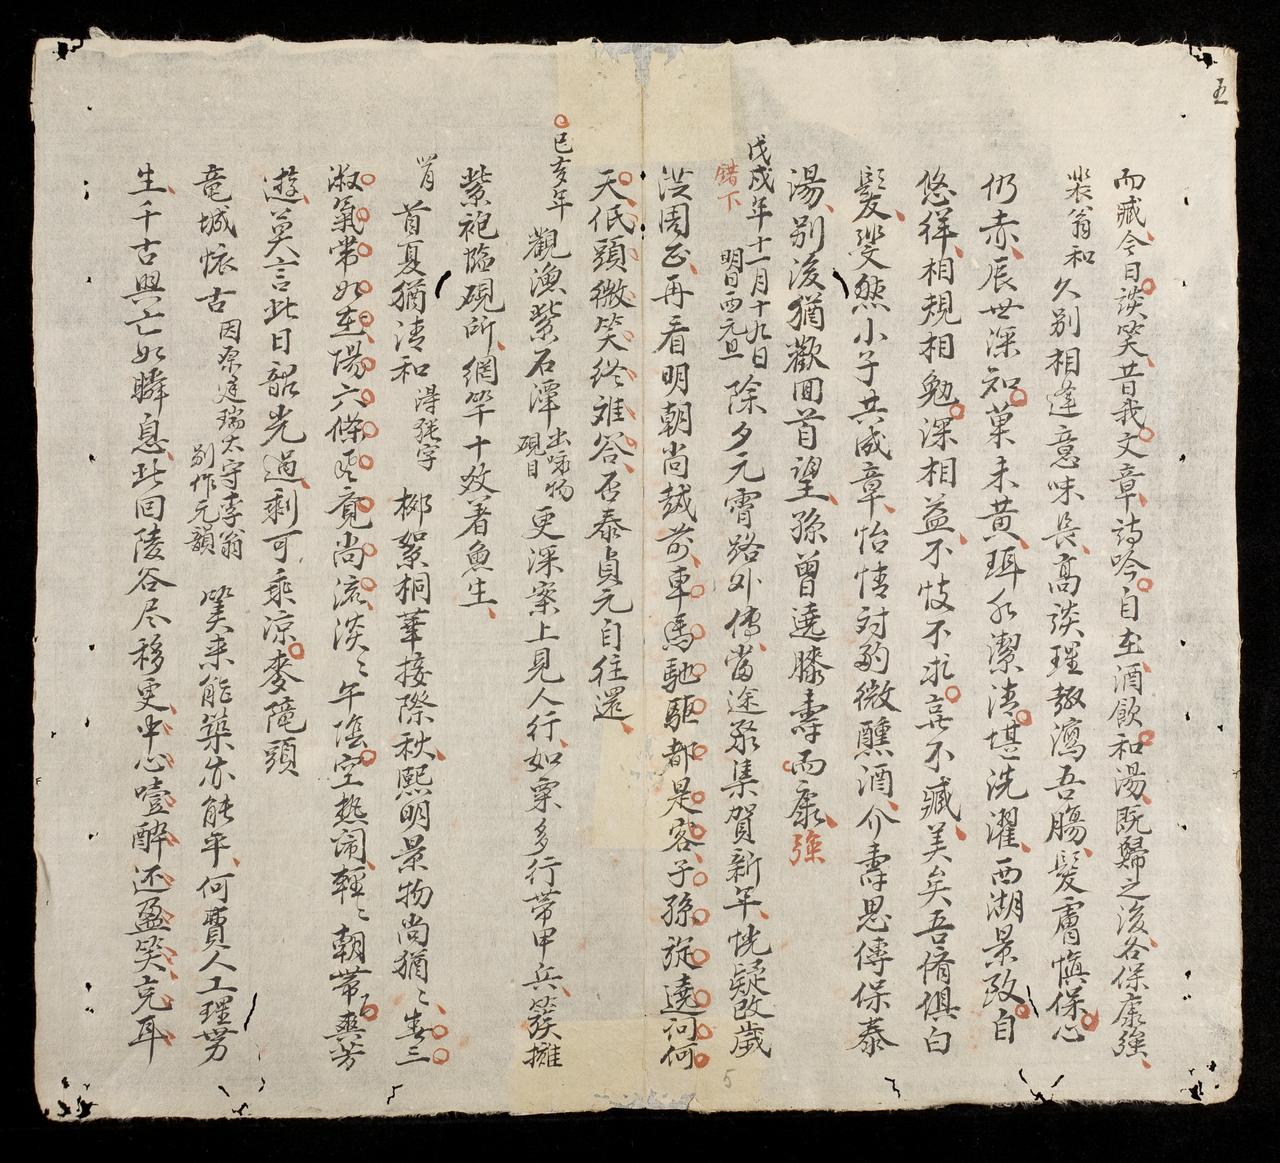 五
而臧今日談笑昔我文章詩吟自在酒飲和湯既歸之後各保康強
裴翁和 久別相逢意味長高談理趣瀉吾腸髮膚慎保心
仍赤辰世深知菓未黃珥水潔清堪洗濯西湖景致自
悠徉相規相勉深相益不忮不求亡不臧美矣吾儕俱白
髮斐然小子共成章怡情対酌微醺酒介壽思傳保泰
湯別後猶歡回首望孫曾遶膝壽而康 強
戊戍年十一月十九日 錯下 明日酉元旦 除夕元霄路外傳當途聚集賀新年恍疑改歲
洪周正再看明朝尚越前車馬馳驅都是客子孫旋遶何何
天低頭微笑終难答否泰貞元自往還
己亥年 觀漁紫石潭 出咏物硯目 更深案上見人行如粟多行帶甲兵簇擁
紫袍臨硯所網竿十效著魚生
首夏猶清和 得猶字 柳絮桐華接際秋熙明景物尚猶〻春三
淑氣常如在陽六條風竟尚流淡〻午陰空熱闹輕〻朝帶爽芳
遊莫言此日韶光過剩可乘凉麥隴頭
竜城懷古 因原庭瑞太守李翁別作元韻 嘆来能築亦能平何費人工理勞
生千古興亡如瞬息此回陵谷尽移更中心噎醉还盈笑克耳
5